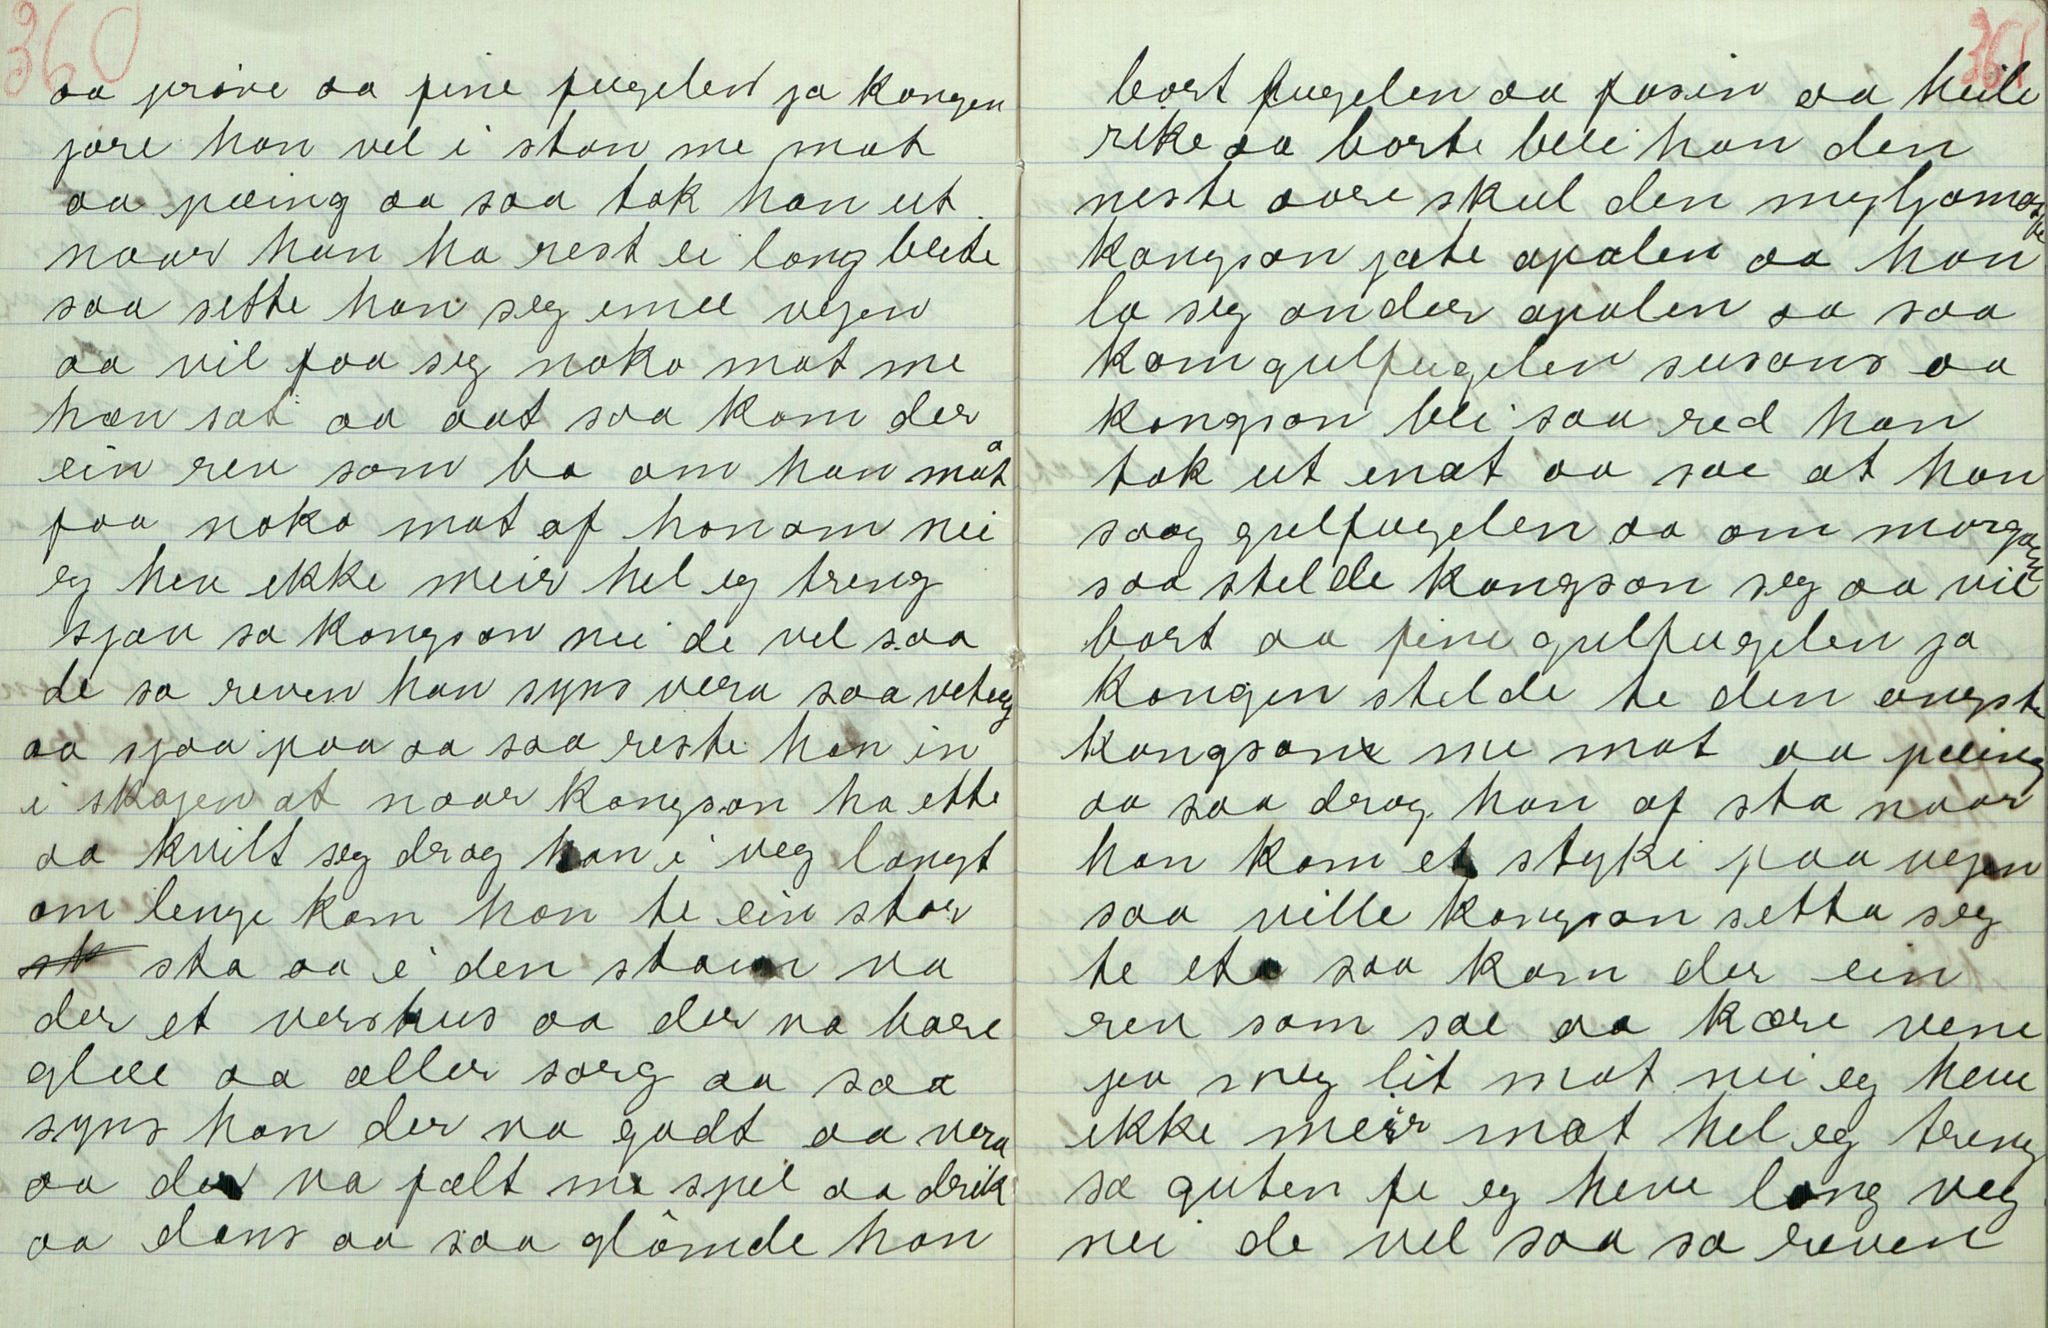 360
aa prøve aa fine fugelen ja kongen
jøre han vel i stan me mat
aa pæing aa saa tok han ut
naar han ha rest ei lang beite
saa sette han seg imee vejen
aa vil faa seg noko mat me
han sat aa aat saa kom der
ein rev som ba om han måt
faa noko mat af honom nei
eg hev ikke meir hel eg treng
sjøav sa kongson nei de vel saa
de sa reven han syns vera saa veteg
aa sjaa paa aa saa reste han in
i skojen at naar kongson ha ette
aa kvilt seg drog han i veg langt
om lenge kom han te ein stor
sta aa i den staen va
der et vershus aa der va bare
glee aa aller sorg aa saa
syns han der va godt aa vera
aa der va fælt me spel aa drik
aa dans aa saa glömde han
361
bort fugelen aa fasin aa heile
rike aa borte blei han den
neste aare skul den myljomaste
kongson jæte apalen aa han
la seg onder apalen aa saa
kom gulfugelen susans aa
kongson blei saa red han
tok ut enat aa sae at han
saag gulfugelen aa om morgaen
saa stelde kongson seg aa vil
bort aa fine gulfugelen ja
kongen stelde te den øngste
kongson me mat aa pæing
aa saa drog han af sta naar
han kom et styke paa vejen
saa ville kongson setta seg
te eta saa kom der ein
rev som sae aa kære vene
jev meg lit mat nei eg heve
ikke meir mat hel eg treng
sa guten fe eg heve lang veg
nei de vel saa sa reven